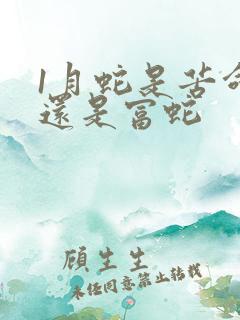 1月蛇是苦命
還是富蛇
顧生生
未经同意禁止转载